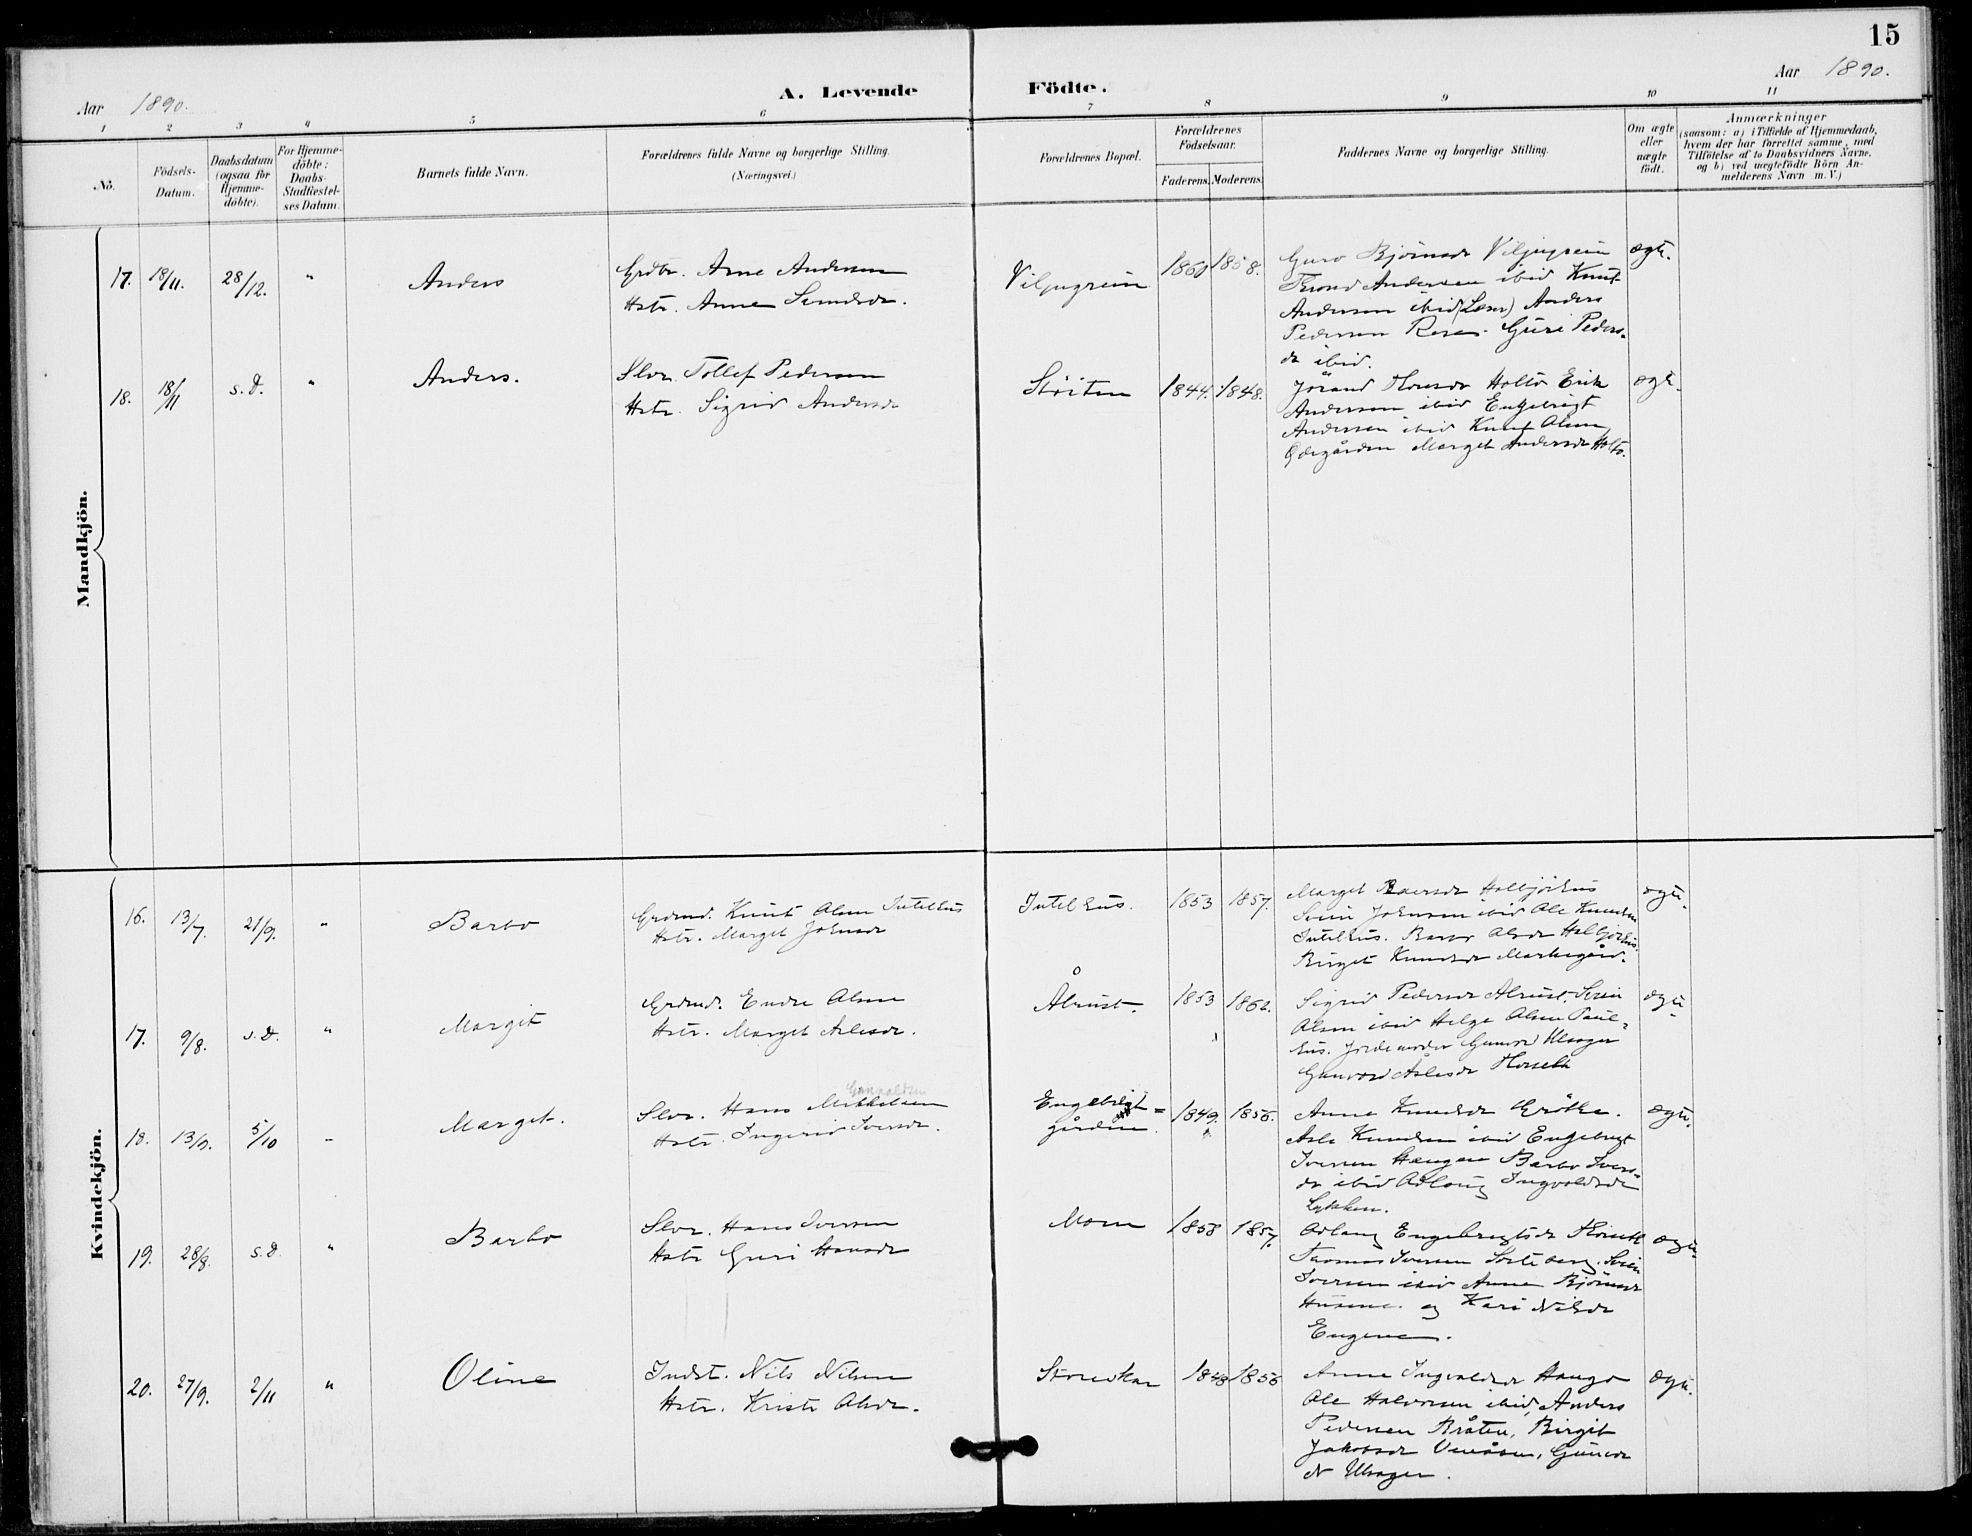 15
Aar 1890.
A. Levende Födte.
Aar 1890.
1 2 3 4 5 6 7 8 9 10 11
No.
Födsels-Datum.
Daabsdatum (ogsaa for Hjemme-döbte).
For Hjemme-döbte: Daabs-Stadfæstel-ses Datum.
Barnets fulde Navn.
Forældrenes fulde Navne og borgerlige Stilling.
(Næringsvei.)
Forældrenes Bopæl.
Forældrenes Födselsaar.
Faderens. Moderens.
Faddernes Navne og borgerlige Stilling.
Om ægte eller uægte födt.
Anmærkninger
(saasom: a) i Tilfælde af Hjemmedaab,
hvem der har forrettet samme, med
Tilföielse af to Daabsvidners Navne,
og b) ved uægtefödte Börn An-
melderens Navn m. V.)
Mandkjön.
17. 18/11. 28/12. " Anders
Grdbr. Arne Andersen
Hstr. Anne
1860 1858.
Guro Björnsdr
Trond Andersen ibid Knut
Andersen ibid Anders
Pedersen Guri Peders-
dr ibid.
ægte.
18. 18/11 s.d. " Anders.
Slvr. Tollef Pedersen
Hstr. Sigrid Andersdr
1844. 1848.
Jörand Holto Erik
Andersen ibid Engebrigt
Andersen ibid Knut Olsen
Ødegården Marget Andersdr Holto.
ægte.
Kvindekjön.
16. 13/7. 21/9. " Barbo
Grdmd. Knut Olsen
Hstr. Marget Johnsdr
1853 1857.
Marget
Svein Johnsen ibid Ole Knudsen
Barbo Olsdr
Birget Knudsdr
ægte.
17. 9/8. s.d. " Margit
Grdmd. Endre Olsen
Hstr. Marget Aslesdr.
Ålrust.
1853 1862.
Sigrid Pedersdr Ålrust, Svein
Olsen ibid Helge Olsen Paul-
hus. Jordemoder Gunvor Ulsager
Gunvor Aslesdr
ægte
18. 5/10 Marget.
Slvr. Hans Mikkelsen
Hstr. Ingerid Iversdr.
Engebrigt=
gården.
1849.
Anne Knudsdr Grötte.
Asle Knudsen ibid Engebrigt
Iversen Haugen Barbo Ivers-
dr ibid Adlaug Ingvoldsdr
Lykken.
ægte.
19. 28/8. s.d. " Barbo
Slvr. Hans Iversen
Hstr Guri Hansdr
Moen
1858 1857.
Adlaug Engebrigtsdr
Thomas Iversen Sorteberg. Svein
Iversen ibid Anne Björnsdr
Husene. og Kari Nilsdr
Engene.
ægte.
20. 27/9. 2/11 " Oline
Indst. Nils Nilsen
Hstr. Kristi Olsdr.
1848 1856
Anne Ingvaldsdr Haugo
Ole Halvorsen ibid, Anders
Pedersen Bråten, Birgit
Jakobsdr Venåsen, Gunvor
N Ulsager.
ægte.